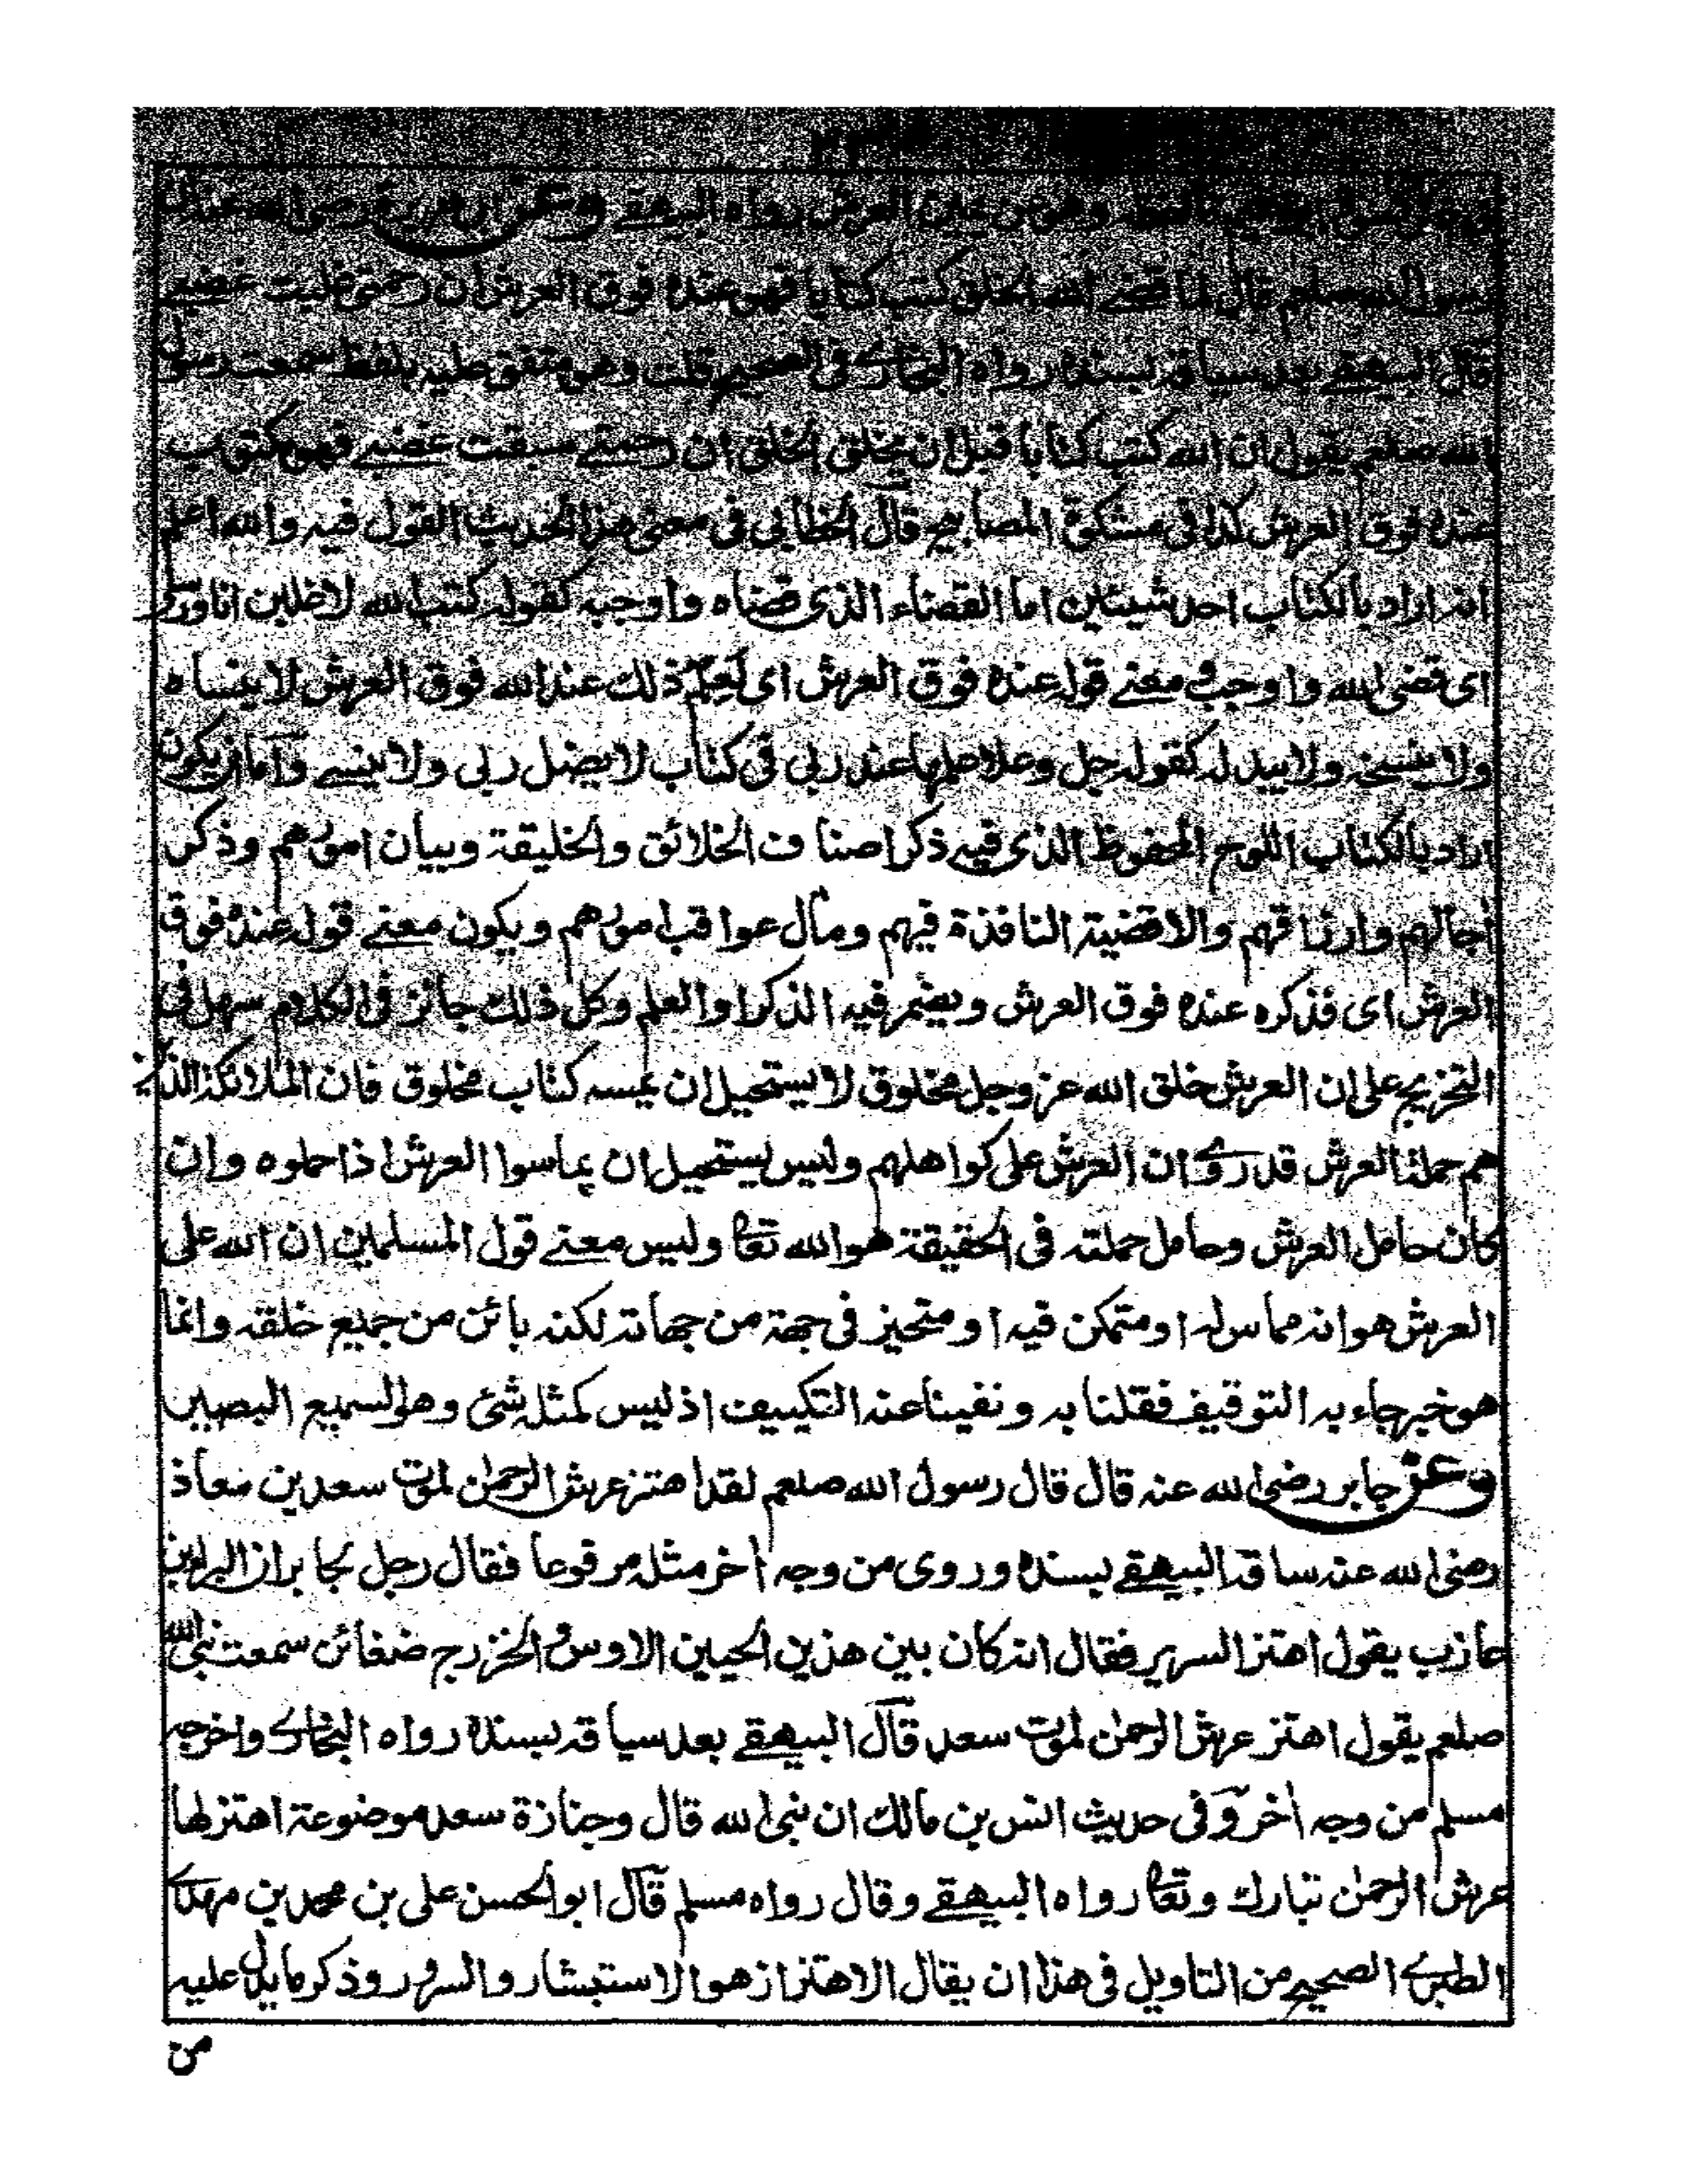 وهو عن يمين العرش رواه البيهقے وعن ابی هريرة رضی الله عنه ان
رسول الله صلعم قال لما قضے الله الخلق كتب كتابا فهو عنده فوق العرش ان رحمتی غلبت غضبے
قال البيهقے بعد سياقه بسنده رواه البخاری فی الصحيح قلت وهو متفق عليه بلفظ سمعت رسول
الله صلعم يقول ان الله كتب كتابا قبل ان يخلق الخلق ان رحمتے سبقت غضبے فهو مكتوب
عنده فوق العرش كذا فی مشكوة المصابيح قال الخطابی فی معنی هذا الحديث القول فيه والله اعلم
انه اراد بالكتاب احد شيئين اما القضاء الذی قضاه واوجبه كقوله كتب الله لاغلبن انا ورسلی
ای قضی الله واوجب فی معنے قوله عنده فوق العرش ای فعلم ذلك عند الله فوق العرش لا ينساه
ولا ينسخه ولا يبدله كقوله جل وعلا علمها عند ربی فی كتاب لا يضل ربی ولا ينسے واما ان يكون
اراد بالكتاب اللوح المحفوظ الذی فيه ذكر اصناف الخلائق والخليقة وبيان امورهم وذكر
اجالهم وارزاقهم والاقضية النافذة فيهم ومآل عواقب امورهم ويكون معنے قوله عنده فوق
العرش ای فذكره عنده فوق العرش ويضمر فيه الذكر او العلم وكل ذلك جائز فی الكلام سهل فی
التخريج علی ان العرش خلق الله عز وجل مخلوق لا يستحيل ان يمسه كتاب مخلوق فان الملائكة الذين
هم حملة العرش قد روے ان العرش علی كواهلهم وليس يستحيل ان يماسوا العرش اذا حملوه وان
كان حامل العرش وحامل حملته فی الحقيقة هو الله تعا وليس معنے قول المسلمين ان الله علی
العرش هو انه مماس له او متمكن فيه او متحيز فی جهة من جهاته لكنه بائن من جميع خلقه وانما
هو خبر جاء به التوقيف فقلنا به ونفينا عنه التكييف اذ ليس كمثله شئ وهو السميع البصير
وعن جابر رضی الله عنه قال قال رسول الله صلعم لقد اهتز عرش الرحمٰن لموت سعد بن معاذ
رضی الله عنه ساقه البيهقے بسنده وروی من وجه اخر مثله مرفوعا فقال رجل لجابر ان البراء بن
عازب يقول اهتز السرير فقال انه كان بين هذين الحيين الاوس والخزرج ضغائن سمعت نبی الله
صلعم يقول اهتز عرش الرحمٰن لموت سعد قال البيهقے بعد سياقه بسنده رواه البخاری واخرجه
مسلم من وجه اخر وفی حديث انس بن مالك ان نبی الله قال وجنازة سعد موضوعة اهتز لها
عرش الرحمٰن تبارك وتعا رواه البيهقے وقال رواه مسلم قال ابو الحسن علی بن محمد بن مهدی
الطبری الصحيح من التاويل فی هذا ان يقال الاهتزاز هو الاستبشار والسرور وذكر ما يدل عليه
من